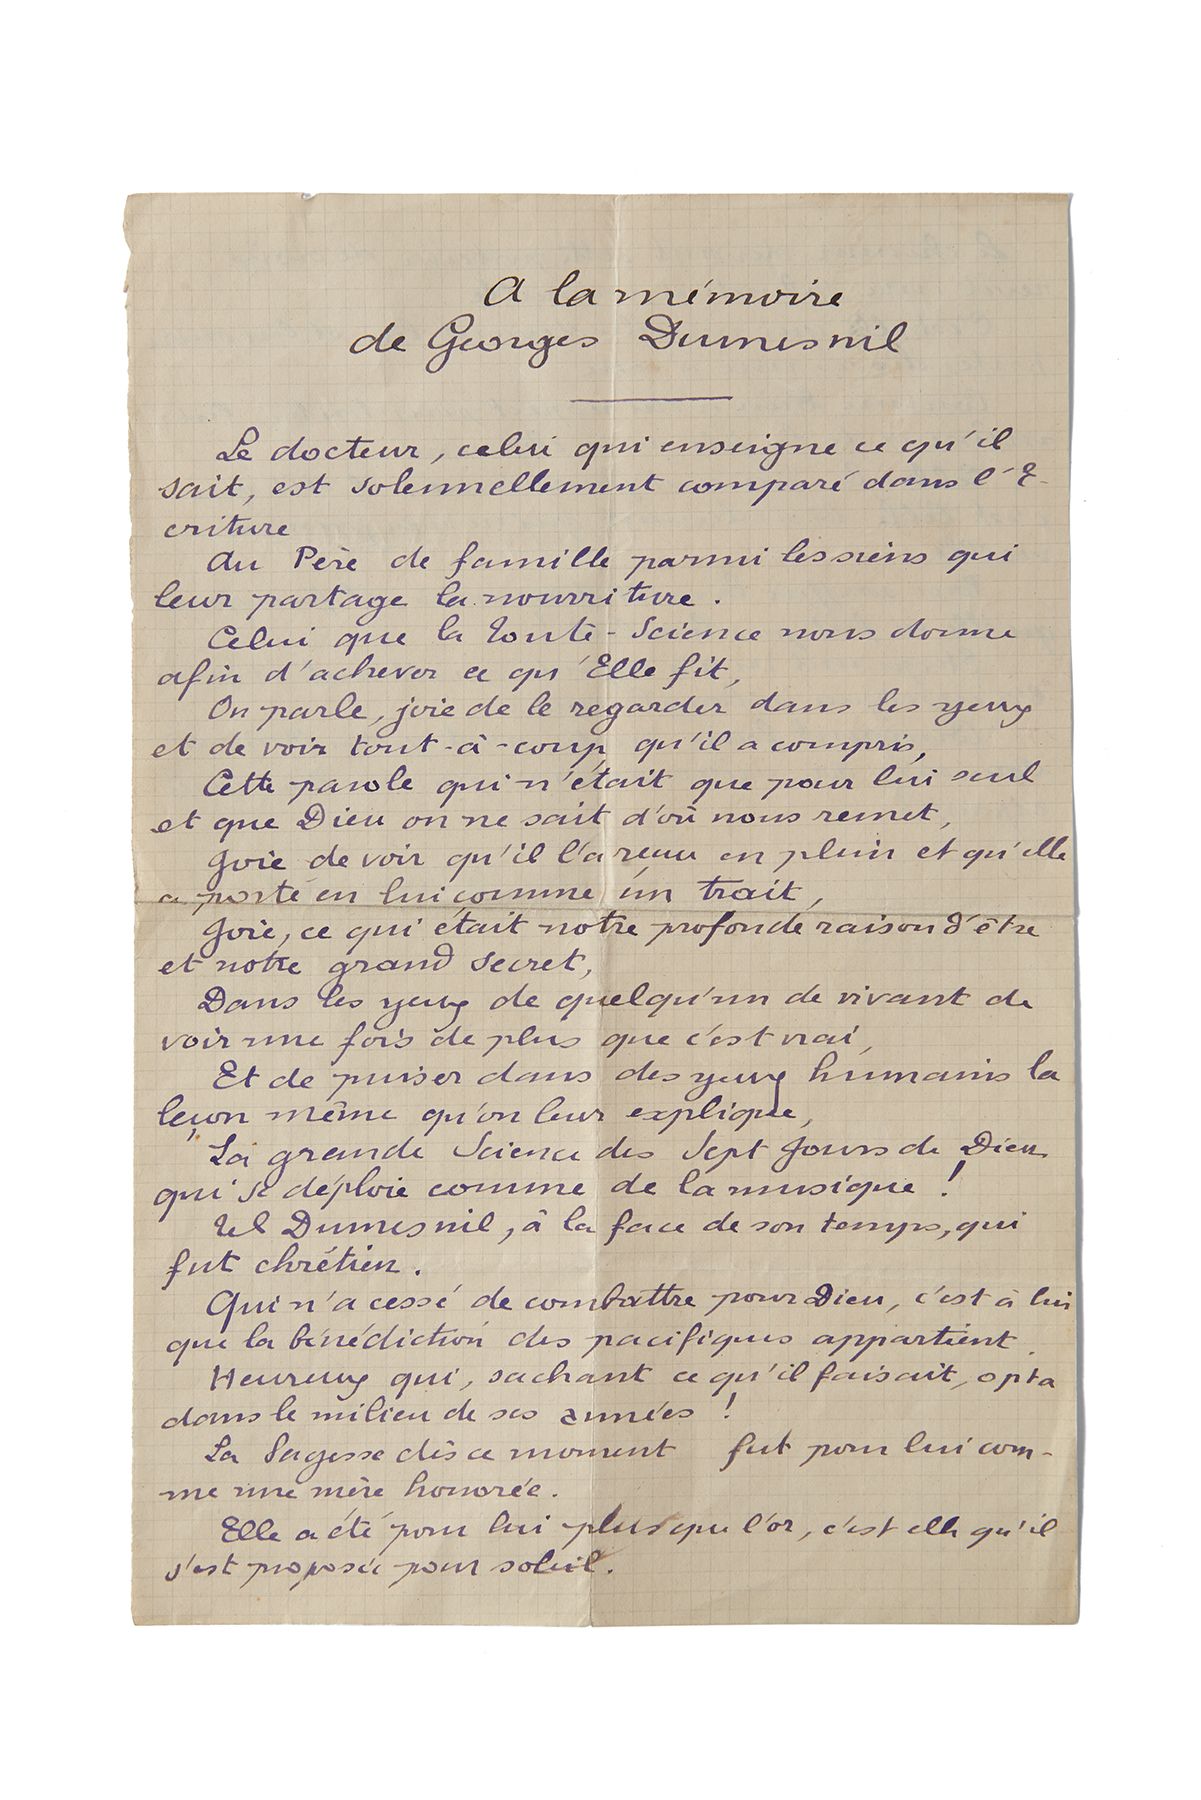 A la mémoire
de Georges Dumesnil
Le docteur, celui qui enseigne ce qu'il
sait, est solennellement comparé dans l'E-
criture
Au Père de famille parmi les siens qui
leur partage la nourriture.
Celui que la Toute-Science nous donne
afin d'achever ce qu'Elle fit,
On parle, joie de le regarder dans les yeux
et de voir tout-à-coup qu'il a compris,
Cette parole qui n'était que pour lui seul
et que Dieu on ne sait d'où nous remet,
Joie de voir qu'il l'a reçue en plein et qu'elle
a porté en lui comme un trait,
Joie, ce qui était notre profonde raison d'être
et notre grand secret,
Dans les yeux de quelqu'un de vivant de
voir une fois de plus que c'est vrai,
Et de puiser dans des yeux humains la
leçon même qu'on leur explique,
La grande Science des Sept Jours de Dieu
qui se déploie comme de la musique !
Tel Dumesnil, à la face de son temps, qui
fut chrétien.
Qui n'a cessé de combattre pour Dieu, c'est à lui
que la bénédiction des pacifiques appartient.
Heureux qui, sachant ce qu'il faisait, opta
dans le milieu de ses années !
La Sagesse dès ce moment fut pour lui com-
me une mère honorée.
Elle a été pour lui plus que l'or, c'est elle qu'il
s'est proposée pour soleil.